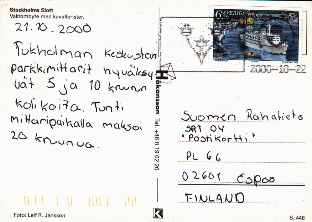 Stockholms Slott
Vaktombyte med kavallerister.
21.10.2000
Tukholman keskustan
parkkimittarit hyväksy
vät 5 ja 10 kruunun
kolikoita. Tunti
mittaripaikalla maksoi
20 kruunua.
SVERIGE
2000-10-22
Suomen Rahatieto
"Postikortti"
PL 66
02601 Espoo
FINLAND
Foto: Leif R. Jansson
S. 448